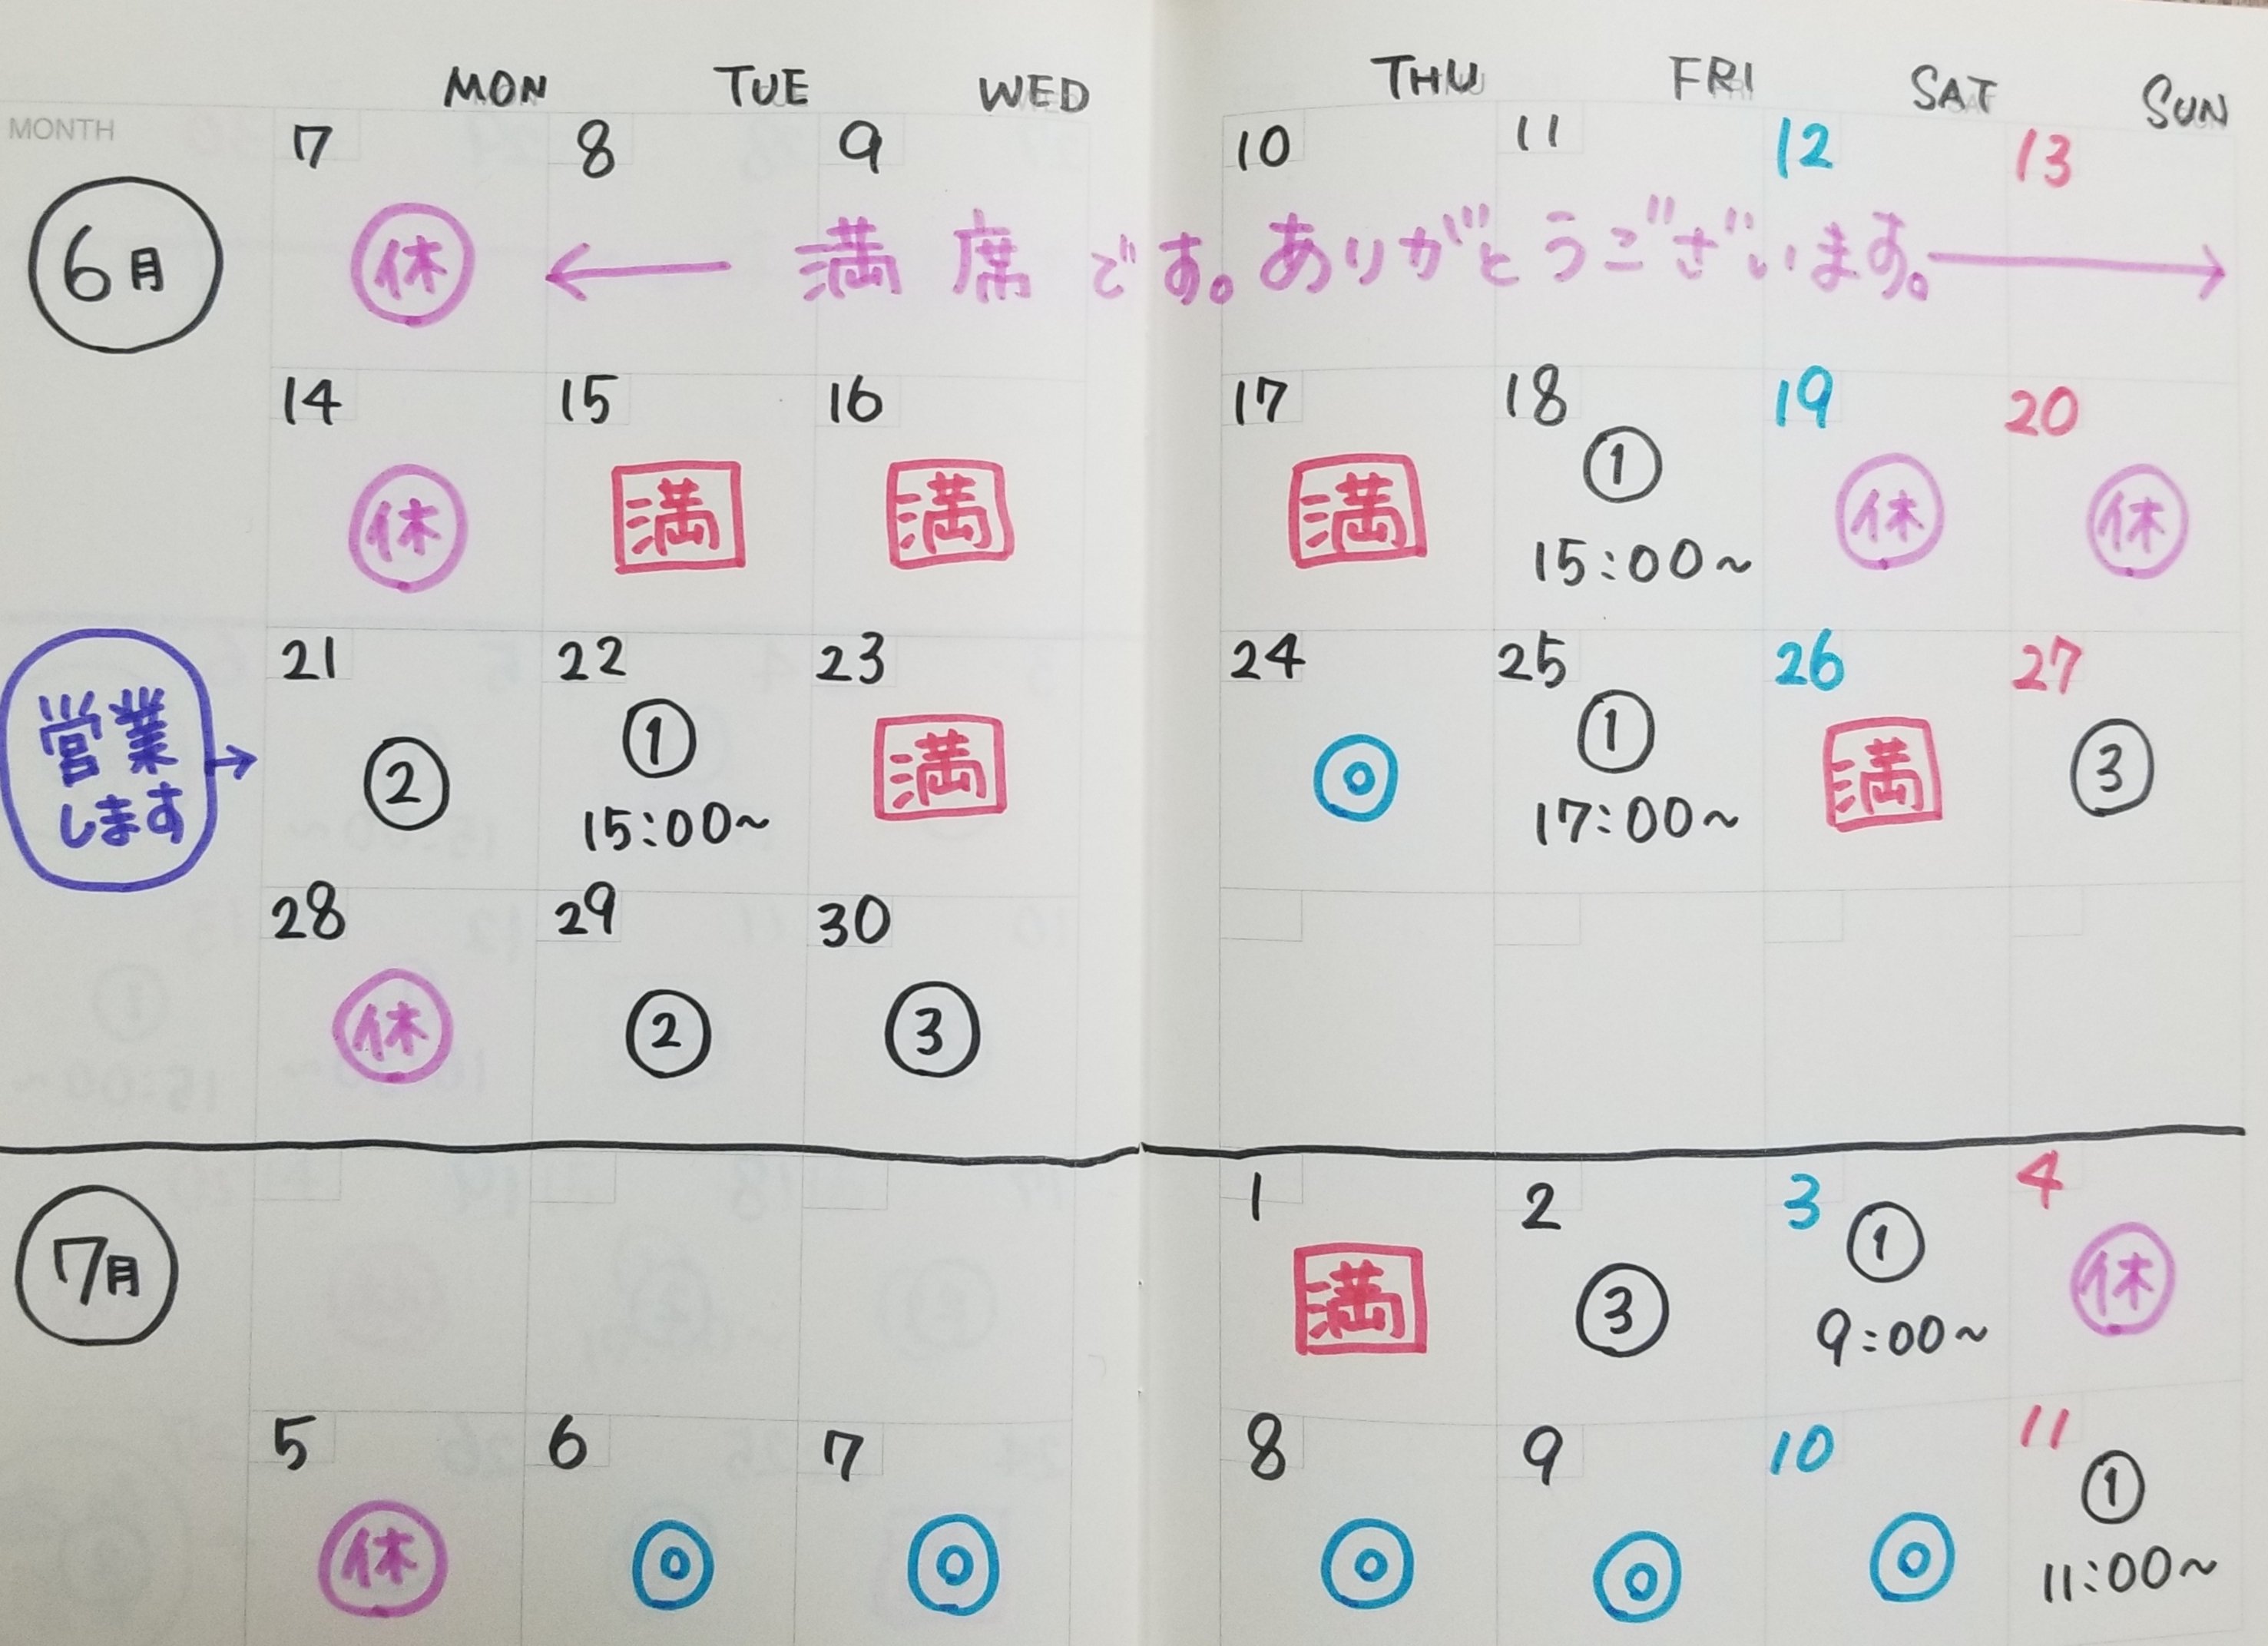 MON TUE WED THU FRI SAT SUN
MONTH
6月
7 8 9 10 11 12 13
休 ← 満席です。ありがとうございます。→
14 15 16 17 18 19 20
休 満 満 満 ① 休 休
15:00~
営業
します→
21 22 23 24 25 26 27
② ① 満 ◎ ① 満 ③
15:00~ 17:00~
28 29 30
休 ② ③
7月
1 2 3 4
満 ③ ① 休
9:00~
5 6 7 8 9 10 11
休 ◎ ◎ ◎ ◎ ◎ ①
11:00~